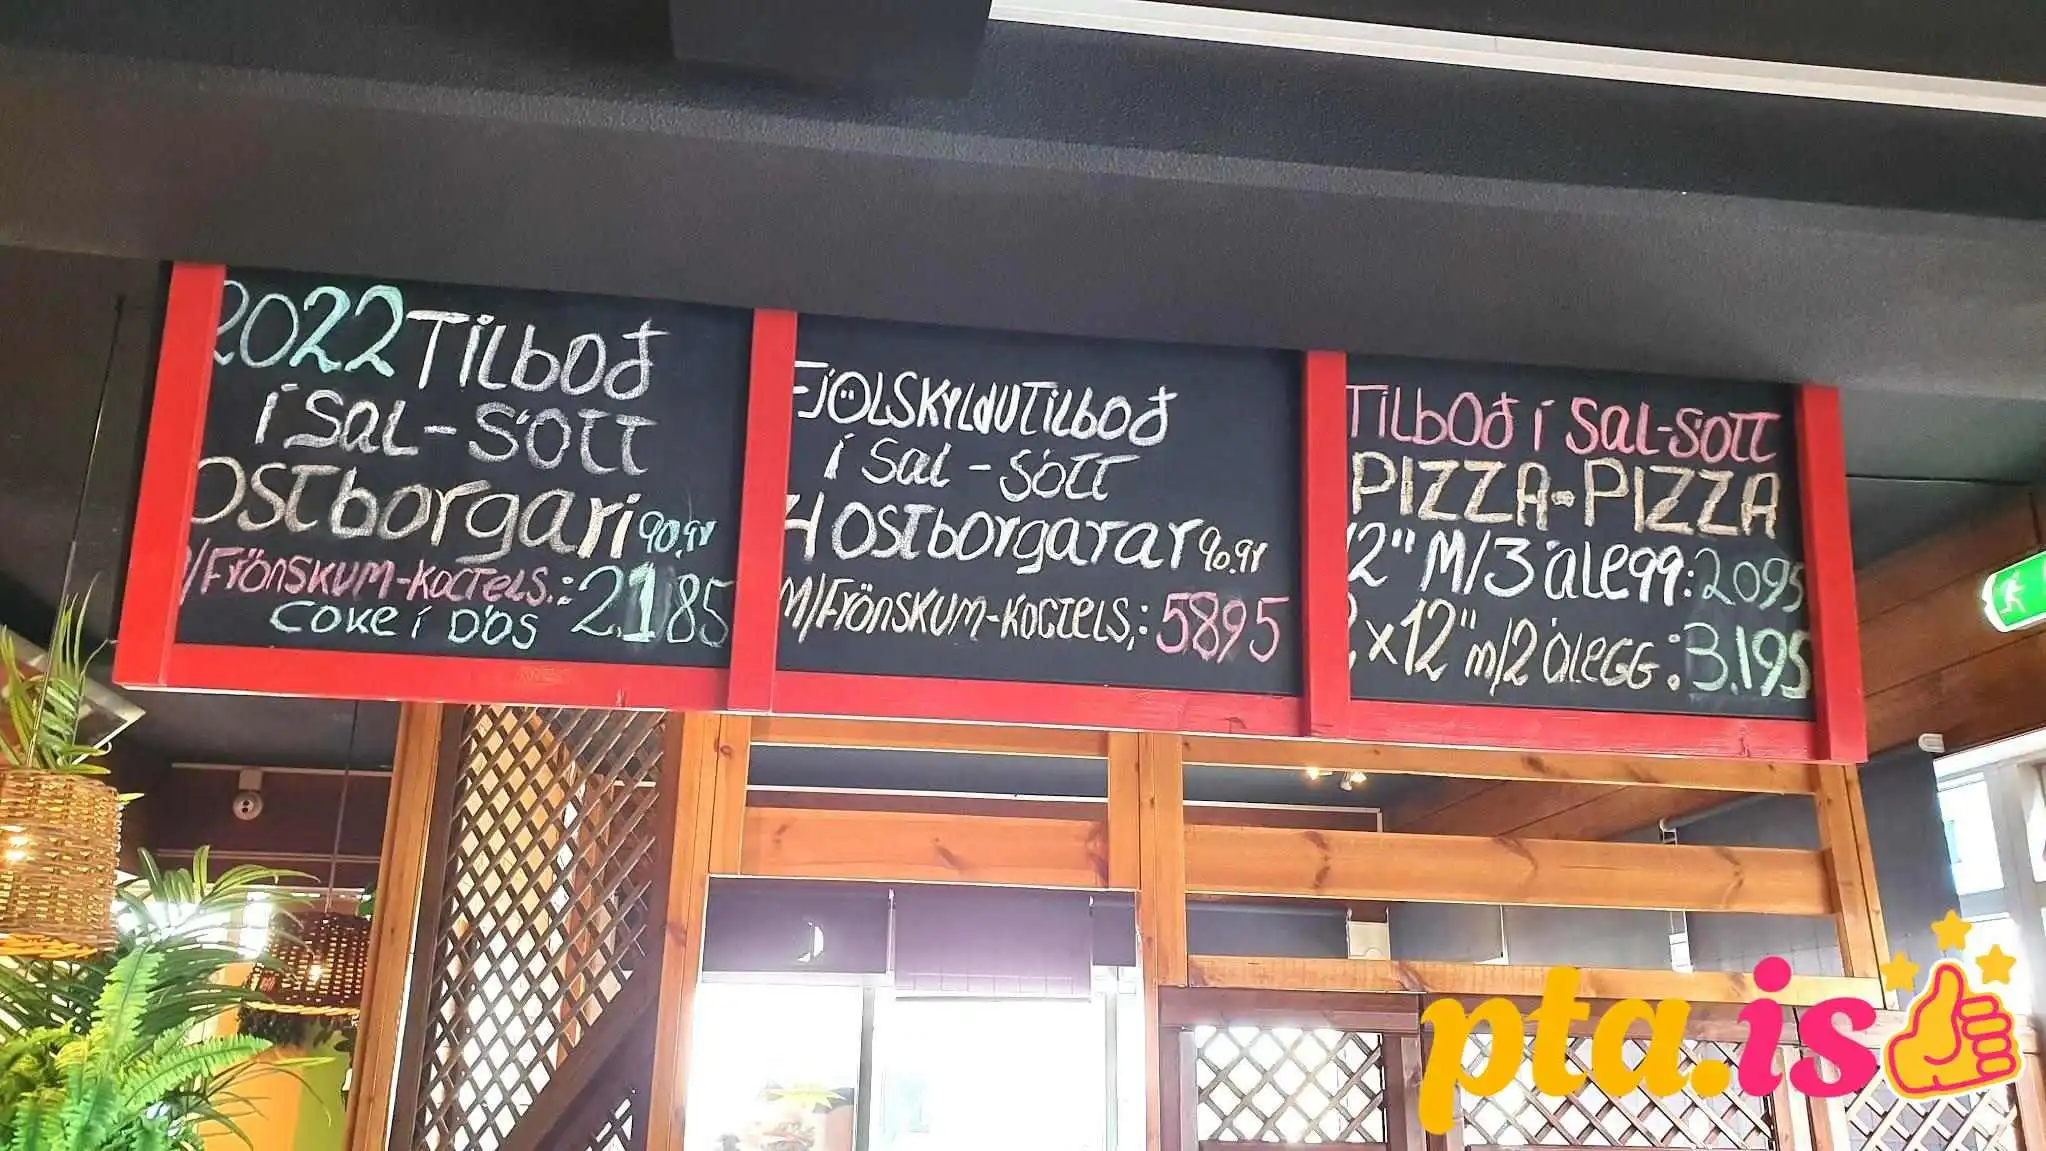 2022 Tilboð
í Sal - Sótt
Ostborgari 90.gr
M/Frönskum-Koctels.: 2.185
Coke í Dós
FJÖLSKYLdUTilboð
í Sal - Sótt
4 Ostborgarar 90.gr
M/Frönskum-Koctels,: 5895
Tilboð í Sal-Sótt
PIZZA-PIZZA
12" M/3 álegg: 2095
2 x 12" m/2 áleGG: 3.195
pta.is